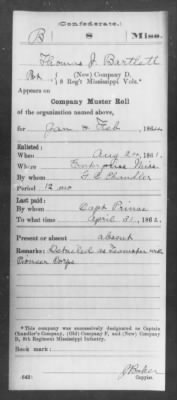 (Confederate.)
B 8 Miss.
Thomas J. Bartlett
Pvt, { (New) Company D,
8 Reg't Mississippi Vols.*
Appears on
Company Muster Roll
of the organization named above,
for Jan & Feb, 186
Enlisted:
When Aug 2, 1861.
Where Enterprise Miss.
By whom Chandler
Period 12 mo
Last paid:
By whom Capt Prince
To what time April 30, 1862.
Present or absent absent
Remarks: Detailed as Teamster with
Pioneer Corps
*This company was successively designated as Captain
Chandler's Company, (Old) Company F, and (New) Company
D, 8th Regiment Mississippi Infantry.
Book mark:
(642)
Baker
Copyist.